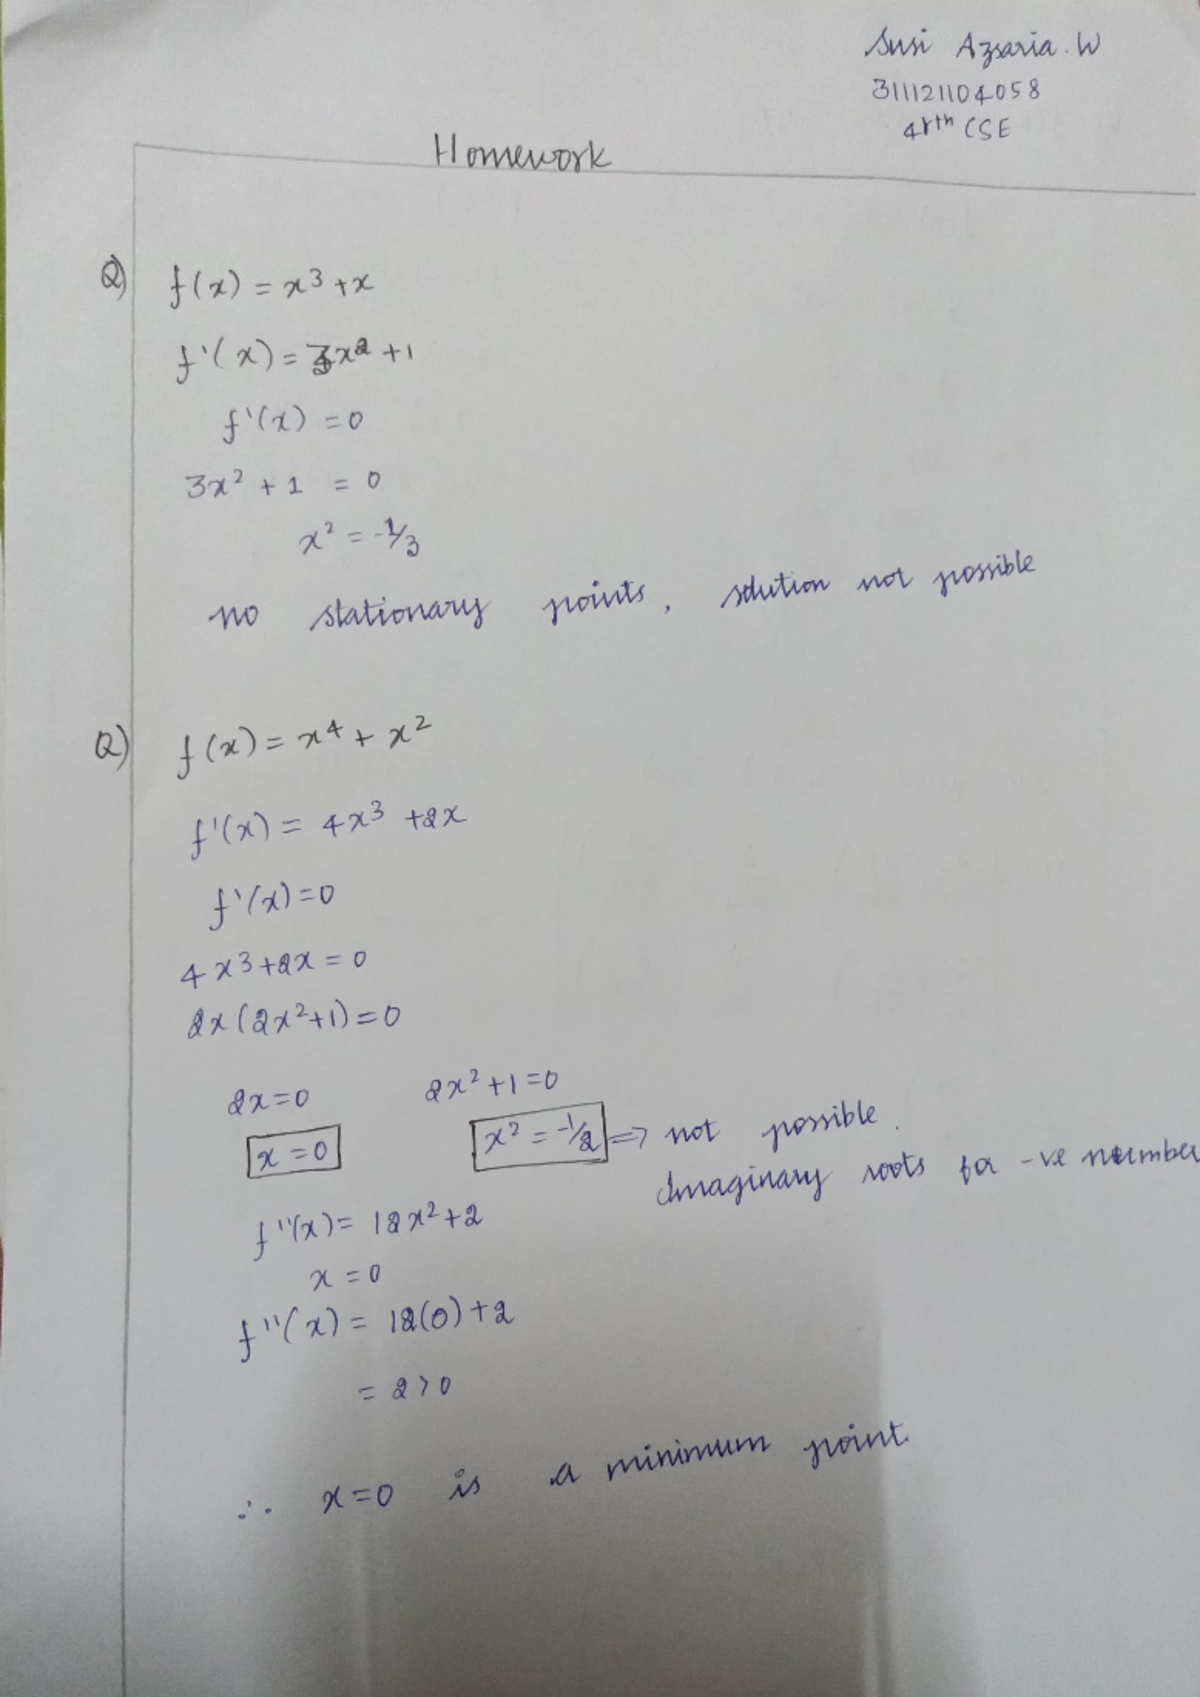 Susi Azsaria. W
311121104058
4rth CSE
Homework
Q) f(x) = x³ + x
f'(x) = 3x² + 1
f'(x) = 0
3x² + 1 = 0
x² = -1/3
no stationary points, solution not possible
Q) f(x) = x⁴ + x²
f'(x) = 4x³ + 2x
f'(x) = 0
4x³ + 2x = 0
2x(2x² + 1) = 0
2x = 0 2x² + 1 = 0
x = 0 x² = -1/2 => not possible.
Imaginary roots for -ve number
f''(x) = 12x² + 2
x = 0
f''(x) = 12(0) + 2
= 2 > 0
∴ x = 0 is a minimum point.